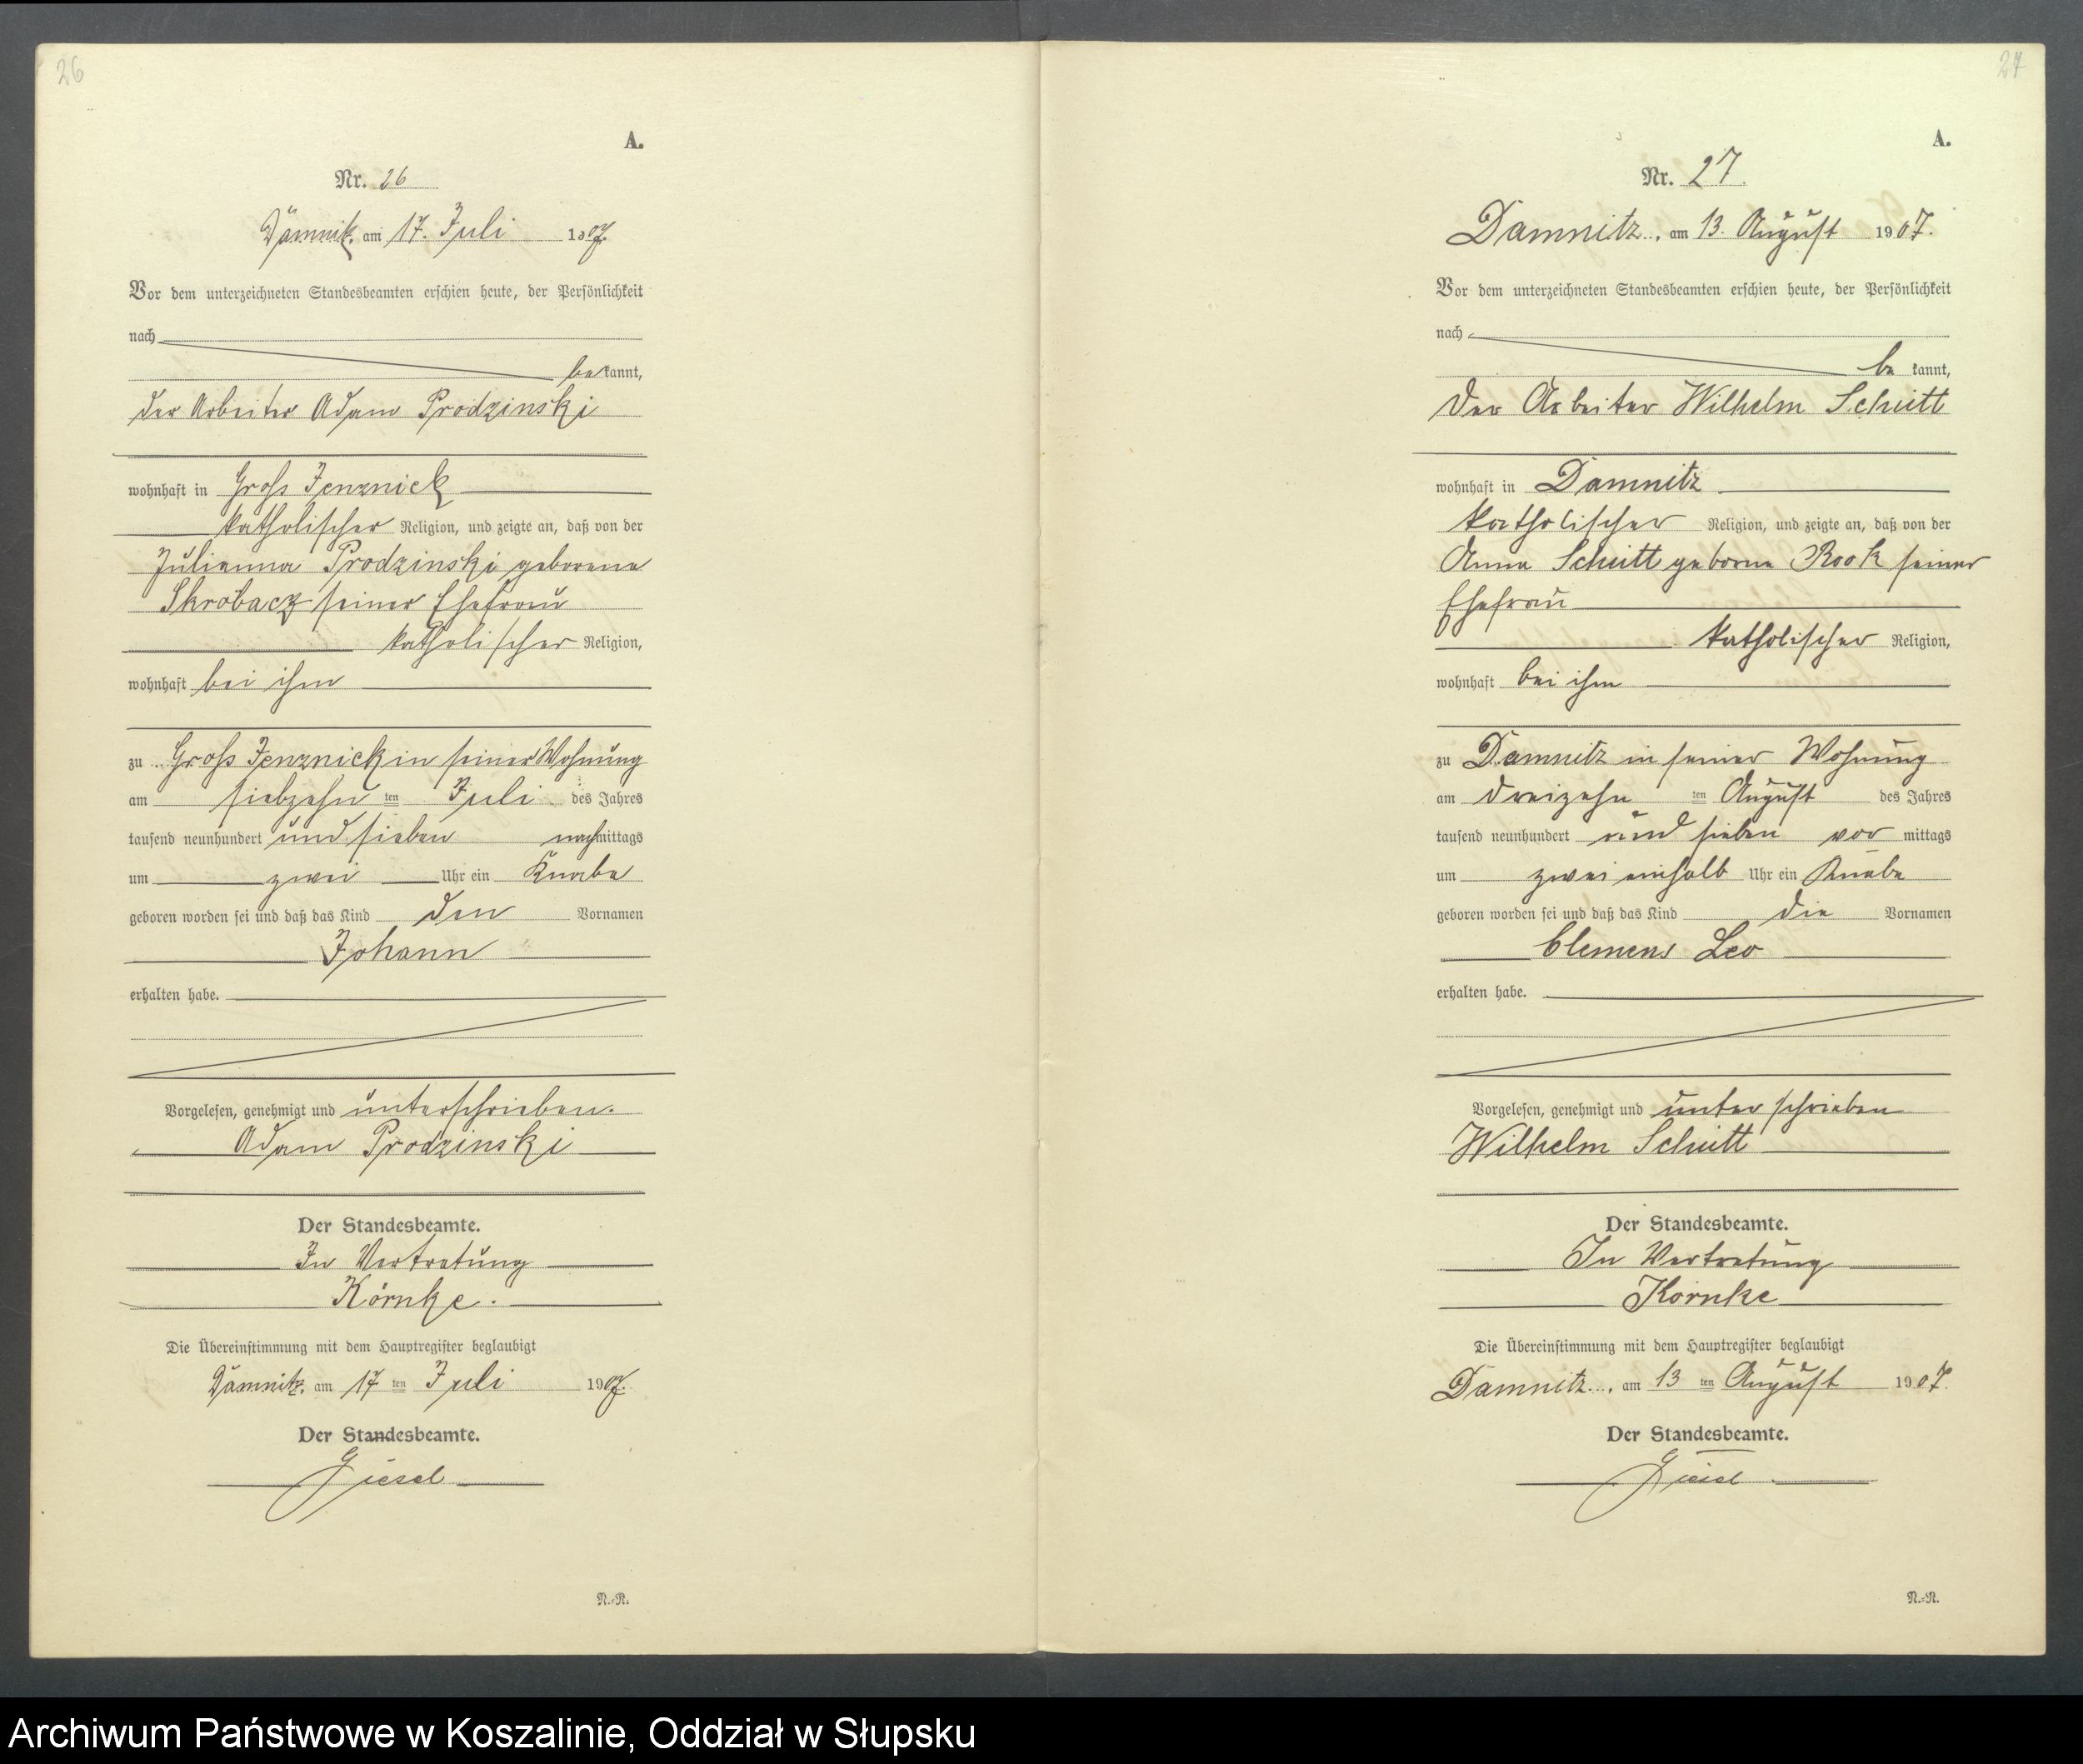 26
A.
Nr. 26
Dämnitz, am 17. Juli 1907.
Vor dem unterzeichneten Standesbeamten erschien heute, der Persönlichkeit
nach
bekannt,
der Arbeiter Adam Prodzinski
wohnhaft in Groß Jenznick
katholischer Religion, und zeigte an, daß von der
Julianna Prodzinski geborene
Skrobacz seiner Ehefrau
katholischer Religion,
wohnhaft bei ihm
zu Groß Jenznick in seiner Wohnung
am siebzehn ten Juli des Jahres
tausend neunhundert und sieben nachmittags
um zwei Uhr ein Knabe
geboren worden sei und daß das Kind den Vornamen
Johann
erhalten habe.
Vorgelesen, genehmigt und unterschrieben.
Adam Prodzinski
Der Standesbeamte.
In Vertretung
Körnke.
Die Übereinstimmung mit dem Hauptregister beglaubigt
Dämnitz, am 17 ten Juli 1907.
Der Standesbeamte.
Giesel
N.-R.
27
A.
Nr. 27.
Damnitz, am 13. August 1907.
Vor dem unterzeichneten Standesbeamten erschien heute, der Persönlichkeit
nach
be kannt,
der Arbeiter Wilhelm Schütt
wohnhaft in Damnitz
katholischer Religion, und zeigte an, daß von der
Anna Schütt geborne Rook seiner
Ehefrau
katholischer Religion,
wohnhaft bei ihm
zu Damnitz in seiner Wohnung
am dreizehn ten August des Jahres
tausend neunhundert und sieben vor mittags
um zwei einhalb Uhr ein Knabe
geboren worden sei und daß das Kind die Vornamen
Clemens Leo
erhalten habe.
Vorgelesen, genehmigt und unterschrieben
Wilhelm Schütt
Der Standesbeamte.
In Vertretung
Körnke
Die Übereinstimmung mit dem Hauptregister beglaubigt
Damnitz, am 13 ten August 1907.
Der Standesbeamte.
Giesel
N.-R.
Archiwum Państwowe w Koszalinie, Oddział w Słupsku